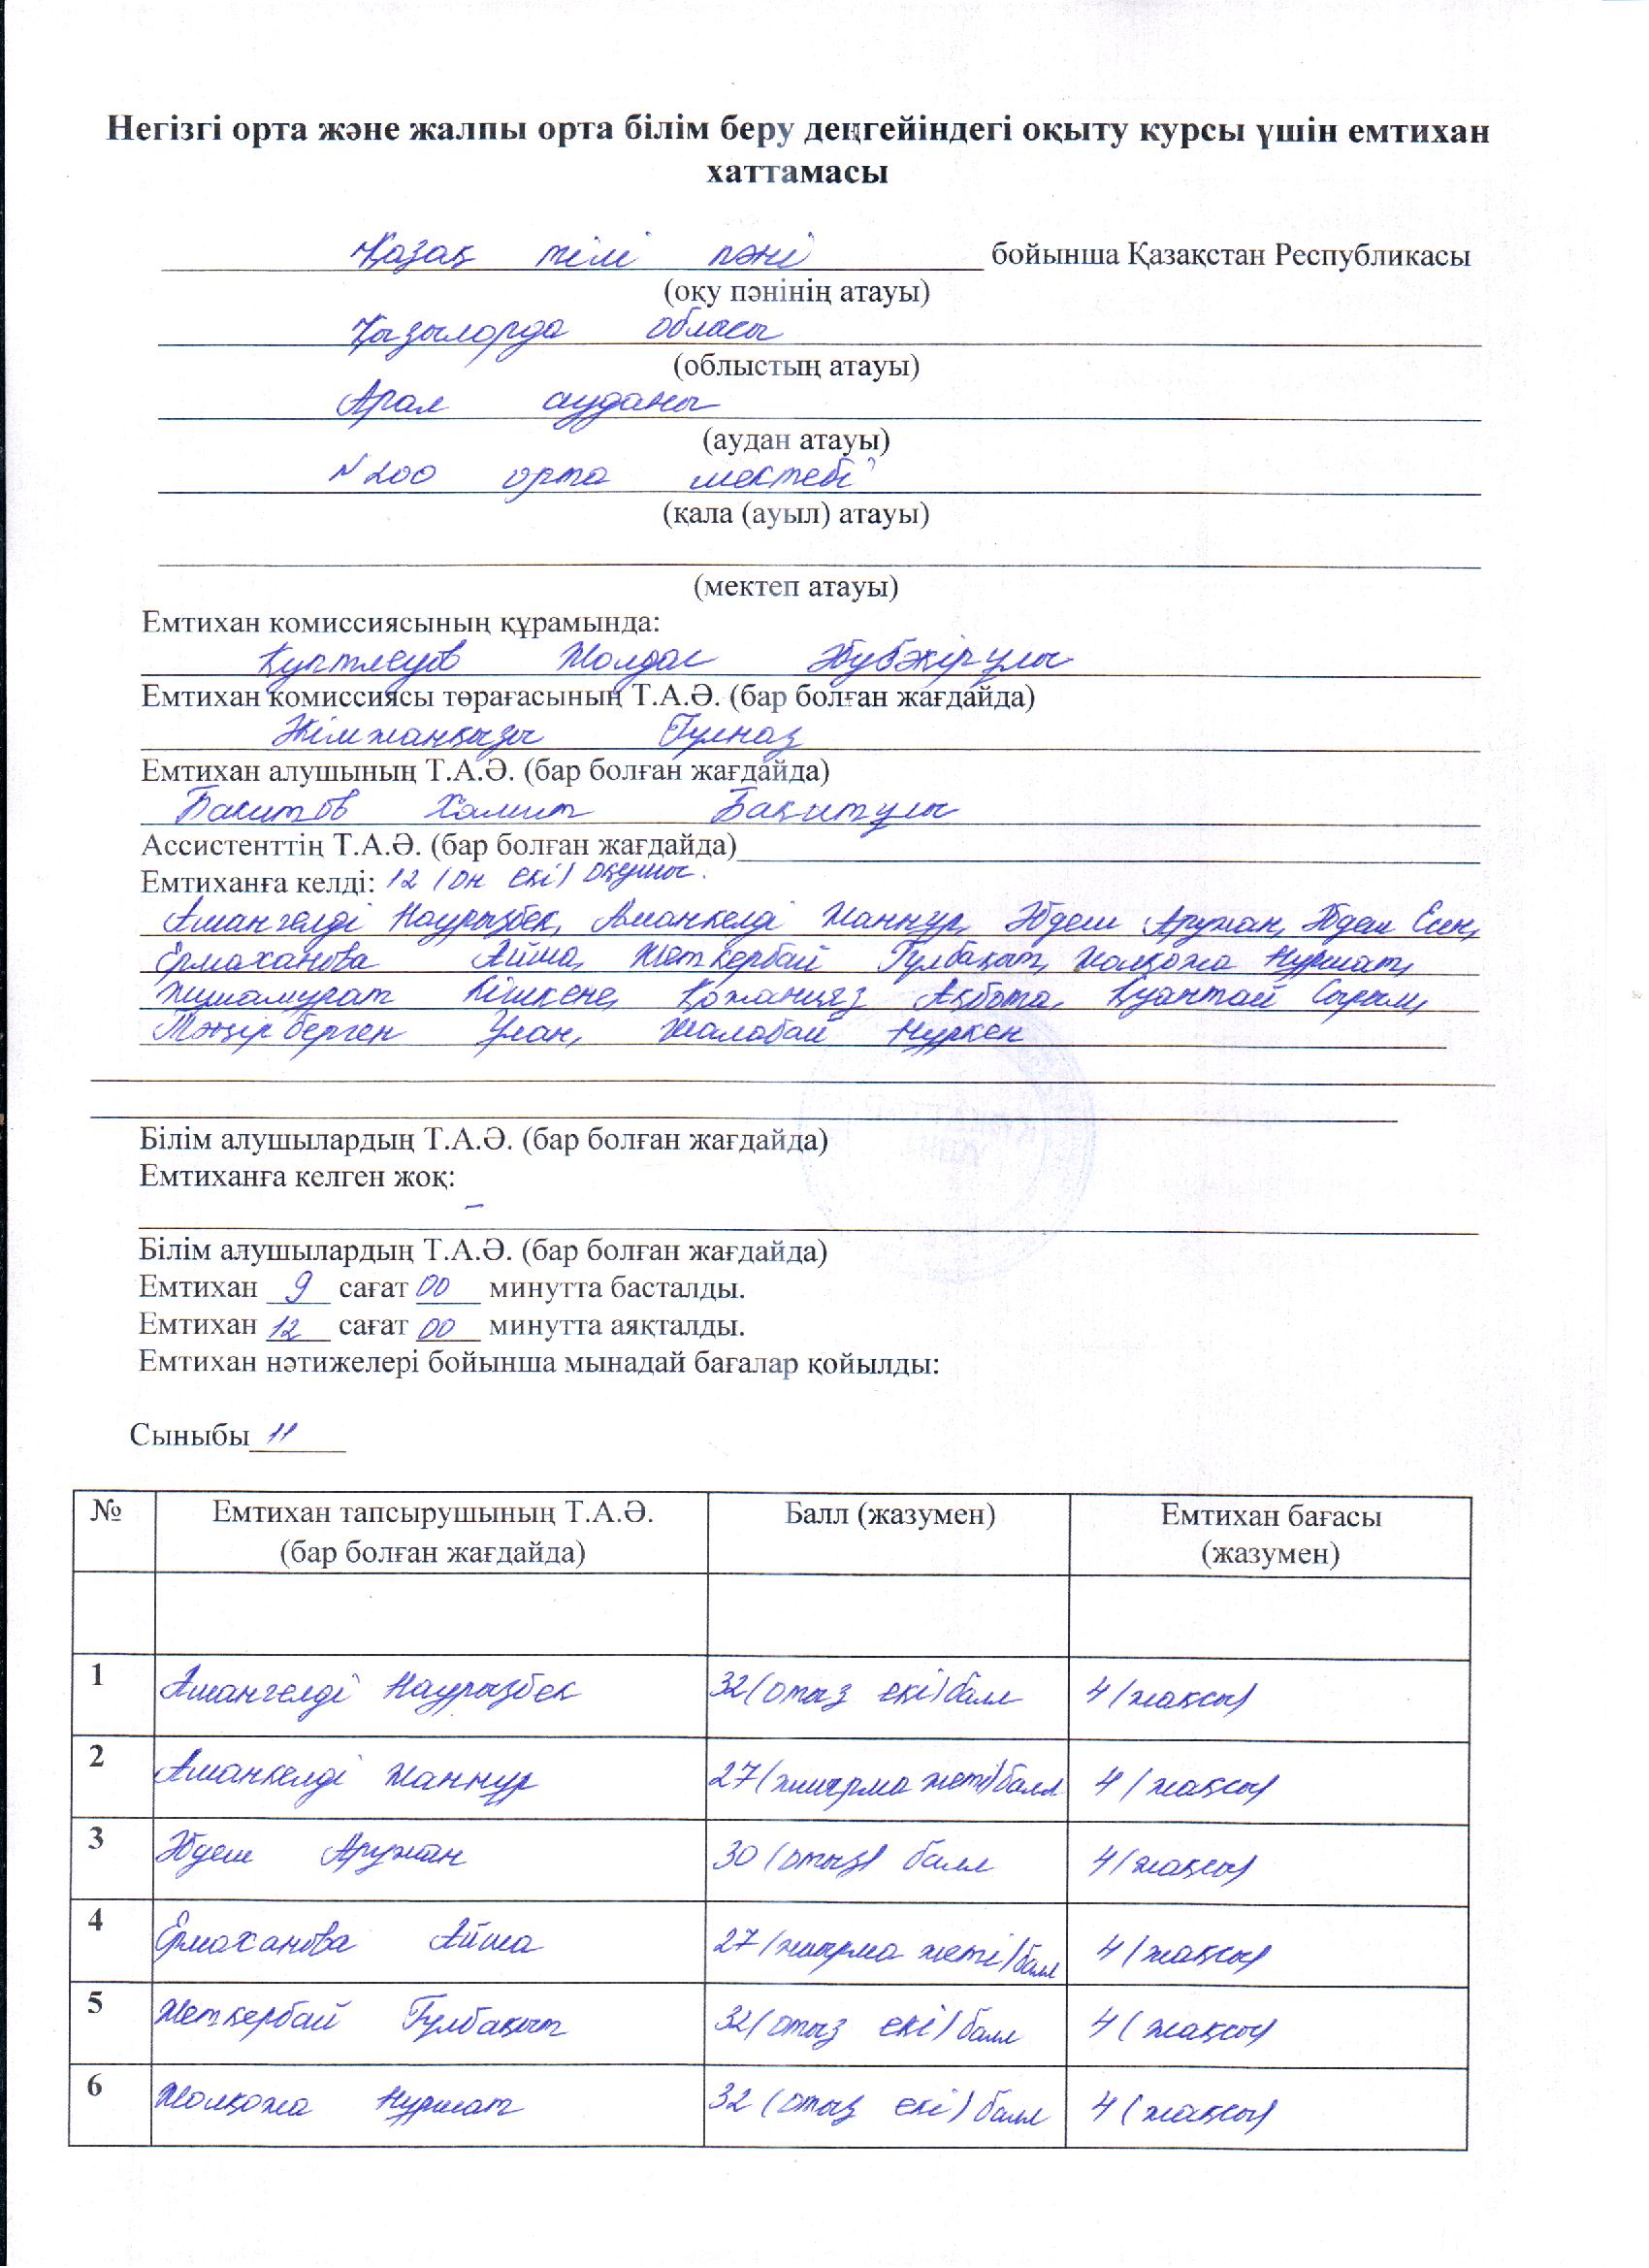 Негізгі орта және жалпы орта білім беру деңгейіндегі оқыту курсы үшін емтихан
хаттамасы
Қазақ тілі пәні бойынша Қазақстан Республикасы
(оқу пәнінің атауы)
Қызылорда обласы
(облыстың атауы)
Арал ауданы
(аудан атауы)
№200 орта мектебі
(қала (ауыл) атауы)
(мектеп атауы)
Емтихан комиссиясының құрамында:
Құптлеуов Жолдас Әбубәкірұлы
Емтихан комиссиясы төрағасының Т.А.Ә. (бар болған жағдайда)
Әкімжанқызы Гүлназ
Емтихан алушының Т.А.Ә. (бар болған жағдайда)
Бакитов Хамит Бақитұлы
Ассистенттің Т.А.Ә. (бар болған жағдайда)
Емтиханға келді: 12 (он екі) оқушы.
Амангелді Наурызбек, Аманкелді Жаннұр, Әбдеш Аружан, Әбдеш Есен,
Ермаханова Айша, Жеткербай Гүлбақыт, Жолқожа Нұршат,
Жұмамұрат Кішкене, Қожанияз Ақбота, Қуантай Сырым,
Тәңірберген Ұлан, Шалабай Нұркен
Білім алушылардың Т.А.Ә. (бар болған жағдайда)
Емтиханға келген жоқ:
–
Білім алушылардың Т.А.Ә. (бар болған жағдайда)
Емтихан 9 сағат 00 минутта басталды.
Емтихан 12 сағат 00 минутта аяқталды.
Емтихан нәтижелері бойынша мынадай бағалар қойылды:
Сыныбы 11
№ Емтихан тапсырушының Т.А.Ә. Балл (жазумен) Емтихан бағасы
(бар болған жағдайда) (жазумен)
1 Амангелді Наурызбек 32 (отыз екі) балл 4 (жақсы)
2 Аманкелді Жаннұр 27 (жиырма жеті) балл 4 (жақсы)
3 Әбдеш Аружан 30 (отыз) балл 4 (жақсы)
4 Ермаханова Айша 27 (жиырма жеті) балл 4 (жақсы)
5 Жеткербай Гүлбақыт 32 (отыз екі) балл 4 (жақсы)
6 Жолқожа Нұршат 32 (отыз екі) балл 4 (жақсы)